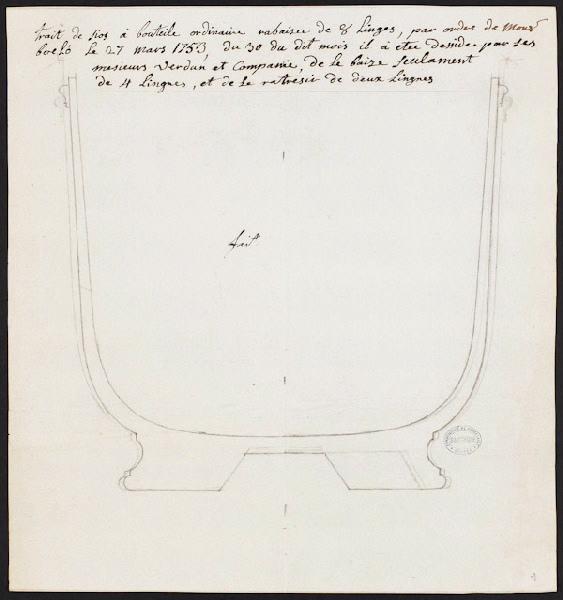 trait de sios à bouteile ordinaire rabaisée de 8 Linges, par ordre de Mons.r
boelo le 27 mars 1753 du 30 du dit mois il à étée desside par les
mesieurs Verdun et Companie, de le baize seulament
de 4 Lingnes, et de le ratrésir de deux Lingnes
fait